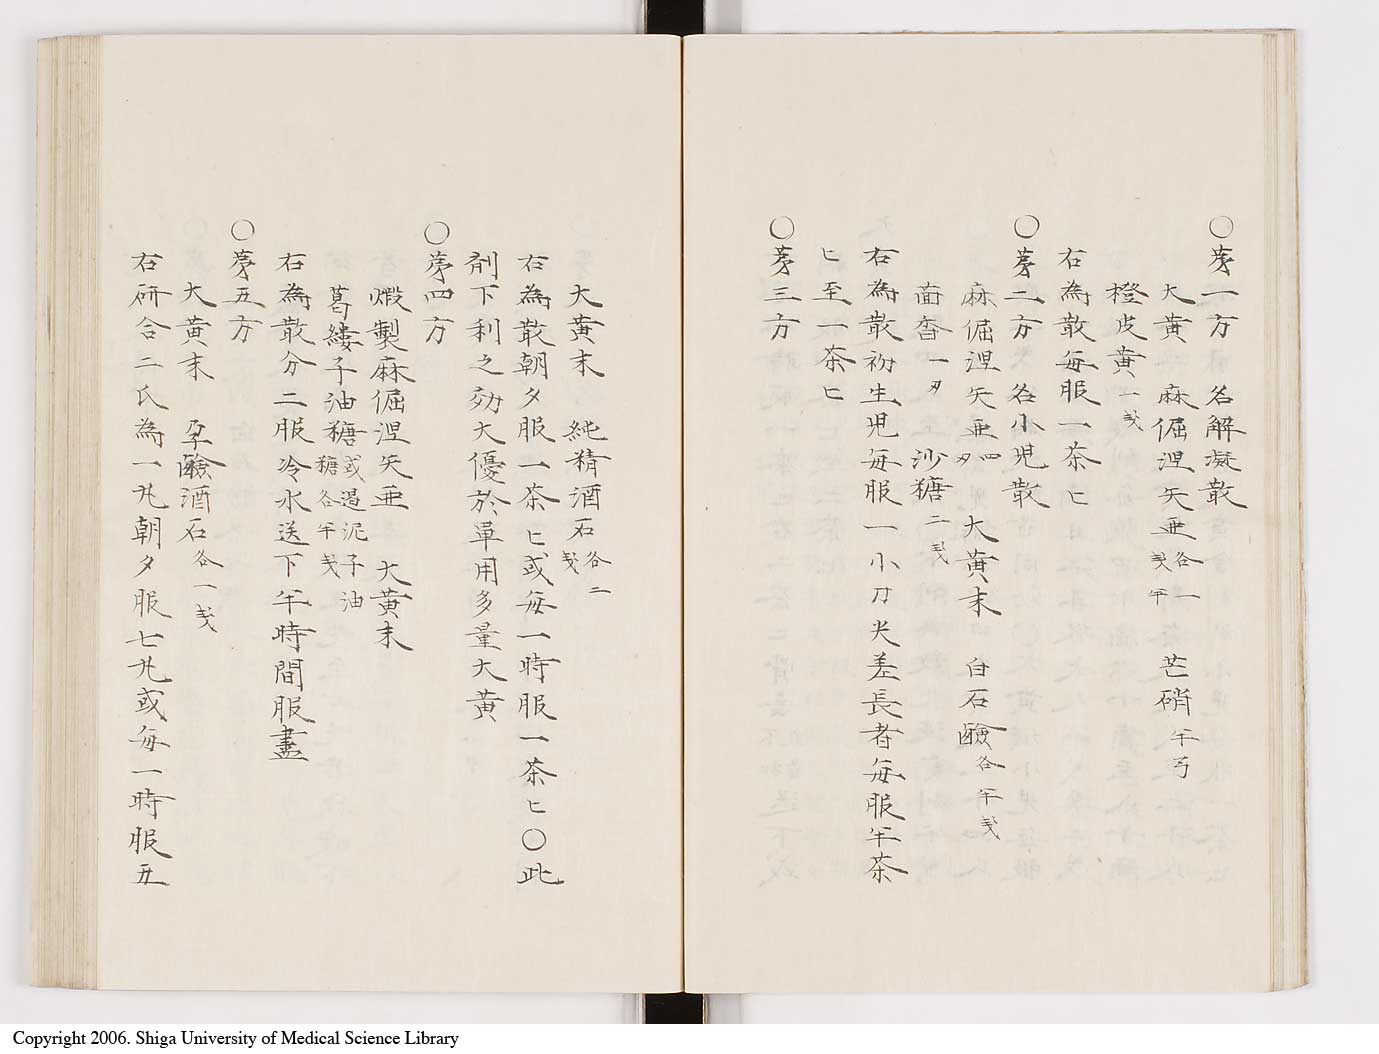 ○第一方 名解凝散
大黄 麻倔涅矢亜各一戔半 芒硝半弓
橙皮黄一戔
右為散毎服一茶匕
○第二方 名小児散
麻倔涅矢亜四刄 大黄末 白石鹼各半戔
茴香一刄 沙糖二戔
右為散初生児毎服一小刀尖差長者毎服半茶
匕至一茶匕
○第三方
大黄末 純精酒石各二戔
右為散朝夕服一茶匕或毎一時服一茶匕○此
剤下利之効大優於単用多量大黄
○第四方
煅製麻倔涅矢亜 大黄末
葛縷子油糖或遏泥子油糖各半戔
右為散分二服冷水送下半時間服盡
○第五方
大黄末 孕鹼酒石各一戔
右研合二氏為一丸朝夕服七丸或毎一時服五
Copyright 2006. Shiga University of Medical Science Library